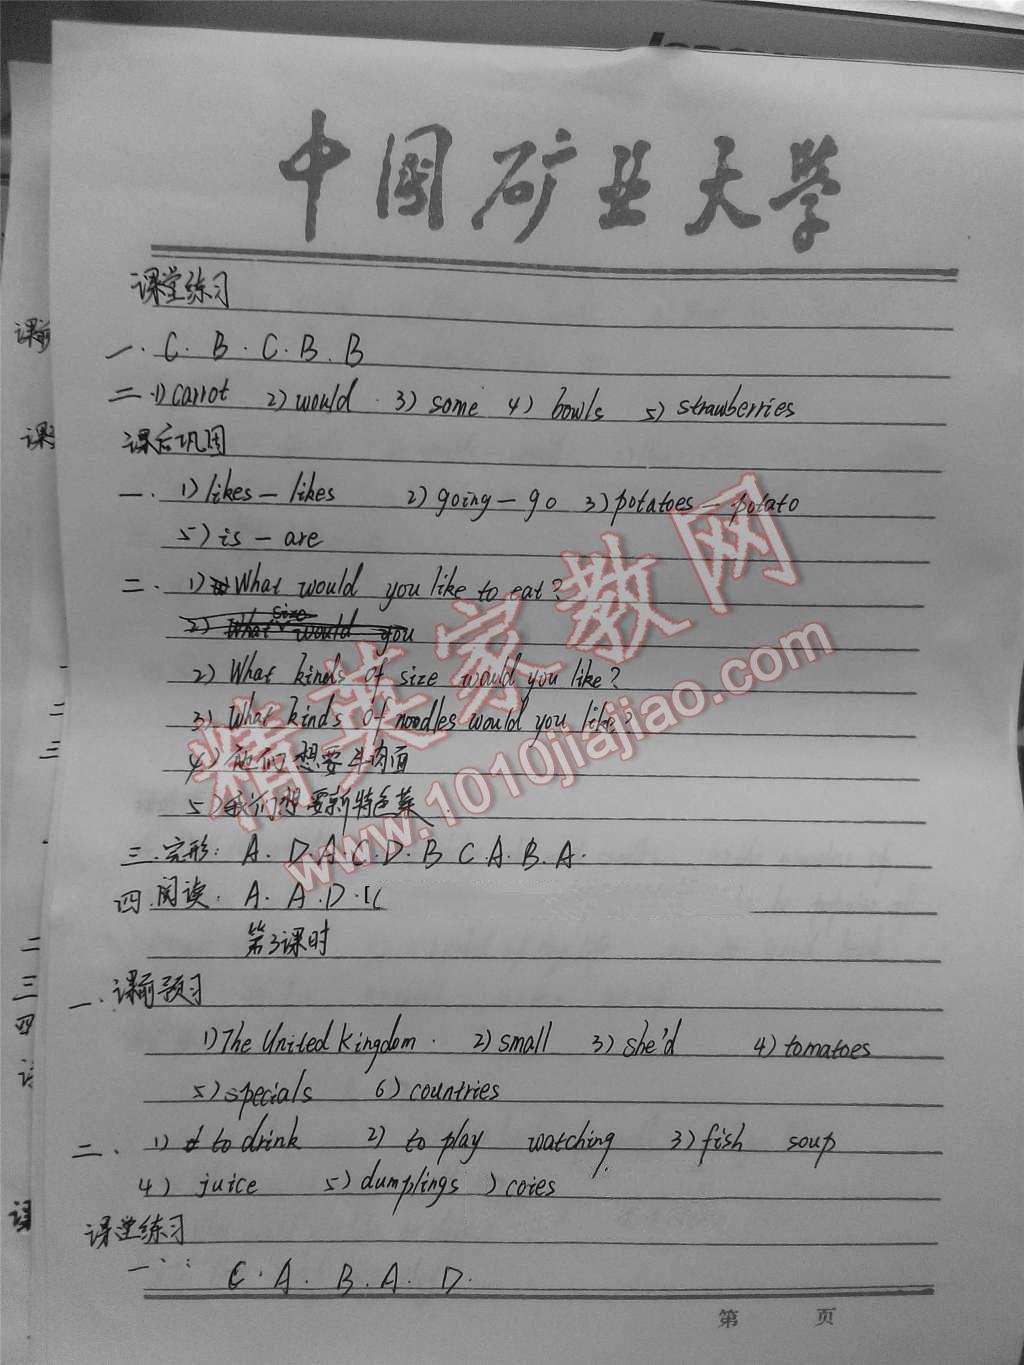 中国矿业大学
课堂练习
一. C. B. C. B. B
二. 1) carrot 2) would 3) some 4) bowls 5) strawberries
课后巩固
一. 1) likes — likes 2) going — go 3) potatoes — potato
5) is — are
二. 1) What would you like to eat?
2) What size would you
2) What kinds of size would you like?
3) What kinds of noodles would you like?
4) 他们想要牛肉面
5) 我们想要新特色菜.
三. 完形: A. D. A. C. D. B C. A. B. A.
四. 阅读: A. A. D. C
第3课时
一. 课前预习
1) The United Kingdom. 2) small 3) she'd 4) tomatoes
5) specials 6) countries
二. 1) to drink 2) to play watching 3) fish soup
4) juice 5) dumplings ) coies
课堂练习
一. C. A. B. A. D.
第 页
精英家教网
www.1010jiajiao.com
课前
二
三
二
三
四